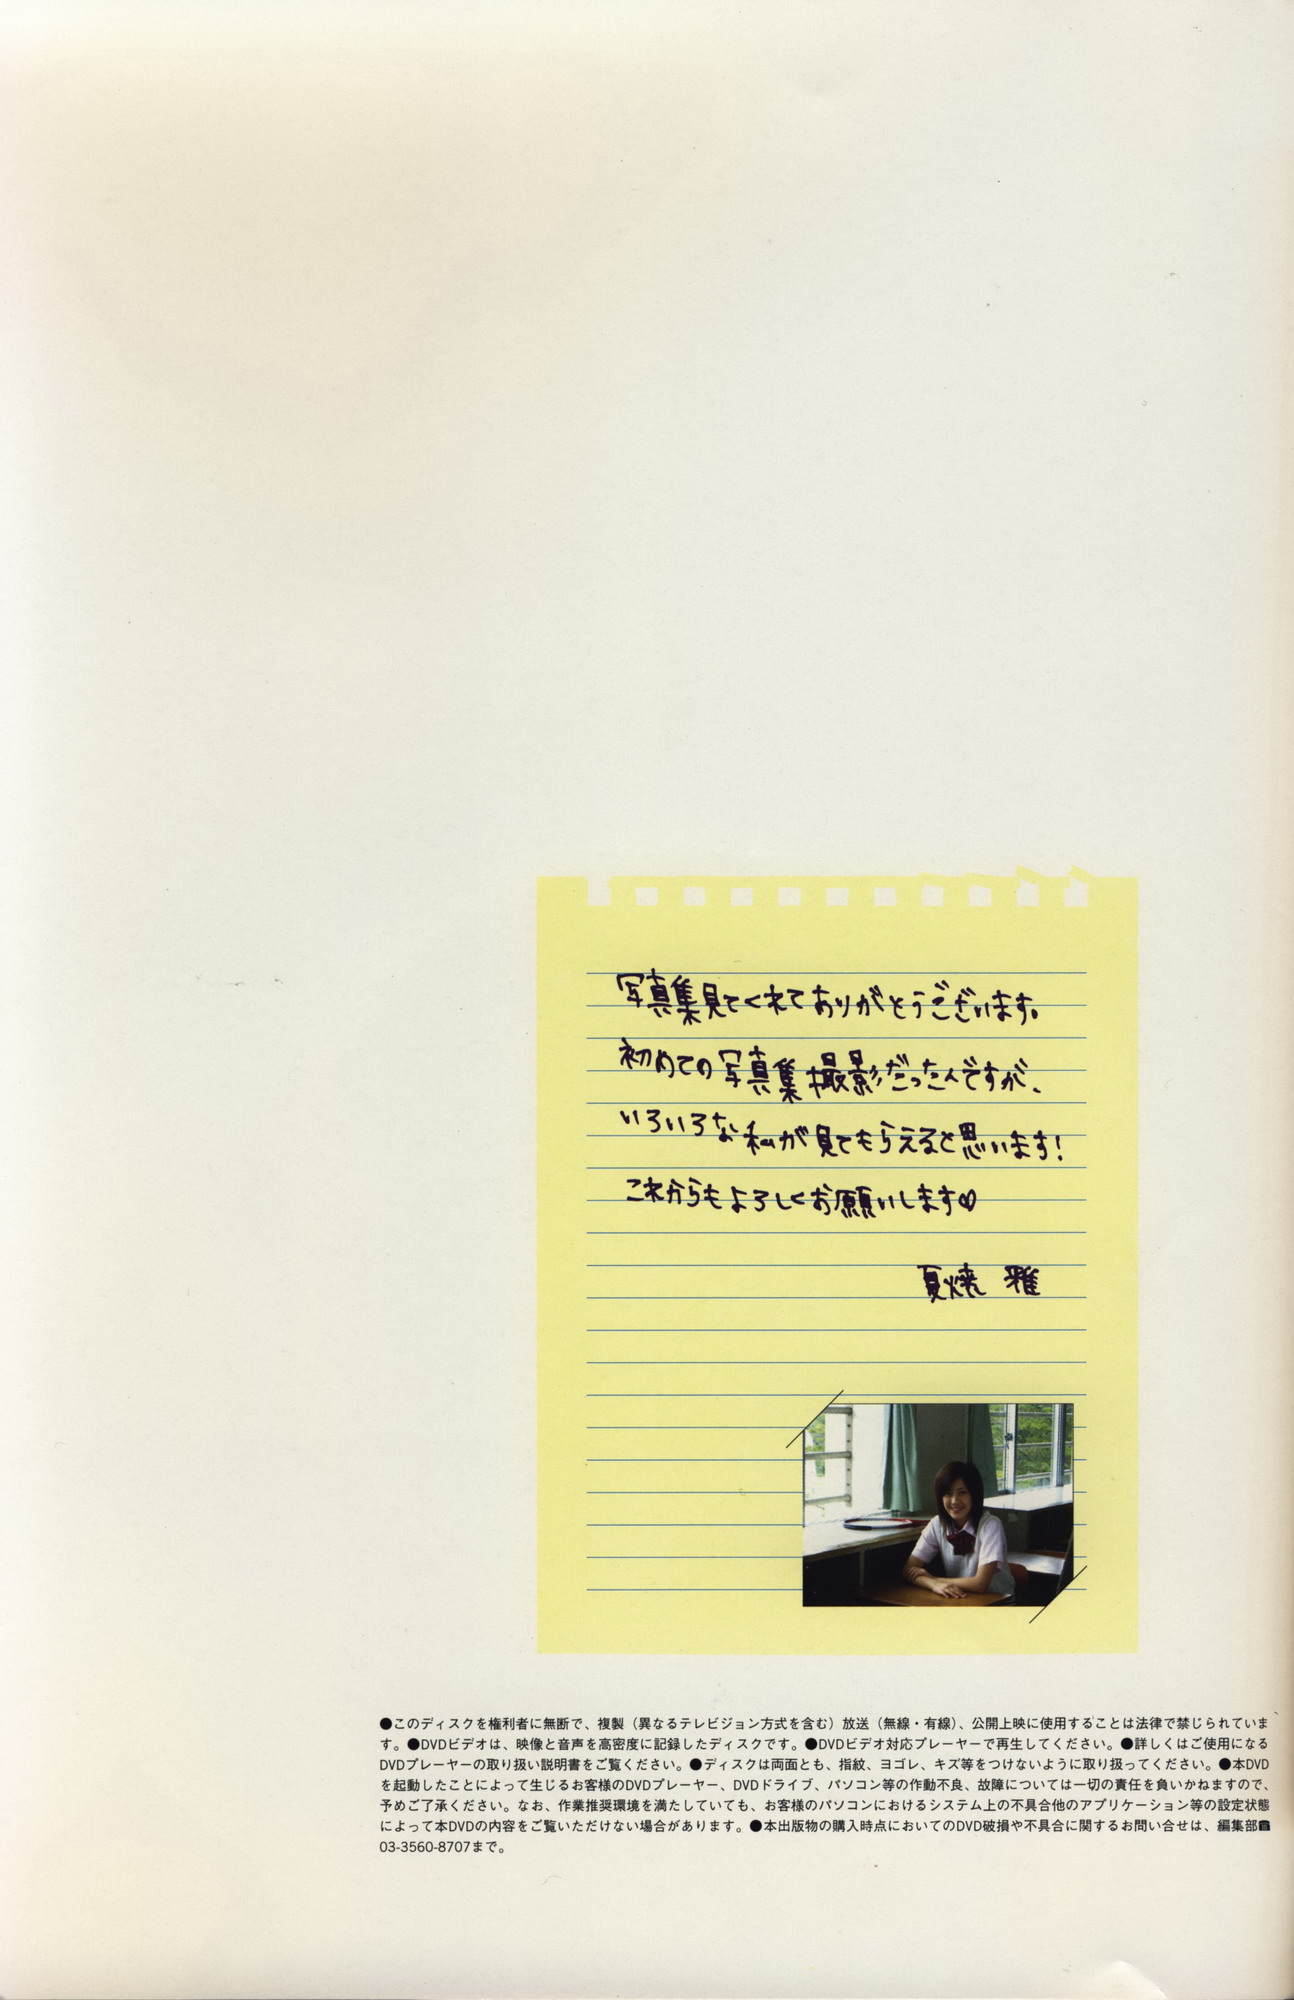 写真集見てくれてありがとうございます。
初めての写真集撮影だったんですが、
いろいろな私が見てもらえると思います!
これからもよろしくお願いします♡
夏焼 雅
●このディスクを権利者に無断で、複製（異なるテレビジョン方式を含む）放送（無線・有線）、公開上映に使用することは法律で禁じられていま
す。●DVDビデオは、映像と音声を高密度に記録したディスクです。●DVDビデオ対応プレーヤーで再生してください。●詳しくはご使用になる
DVDプレーヤーの取り扱い説明書をご覧ください。●ディスクは両面とも、指紋、ヨゴレ、キズ等をつけないように取り扱ってください。●本DVD
を起動したことによって生じるお客様のDVDプレーヤー、DVDドライブ、パソコン等の作動不良、故障については一切の責任を負いかねますので、
予めご了承ください。なお、作業推奨環境を満たしていても、お客様のパソコンにおけるシステム上の不具合他のアプリケーション等の設定状態
によって本DVDの内容をご覧いただけない場合があります。●本出版物の購入時点においてのDVD破損や不具合に関するお問い合せは、編集部☎
03-3560-8707まで。